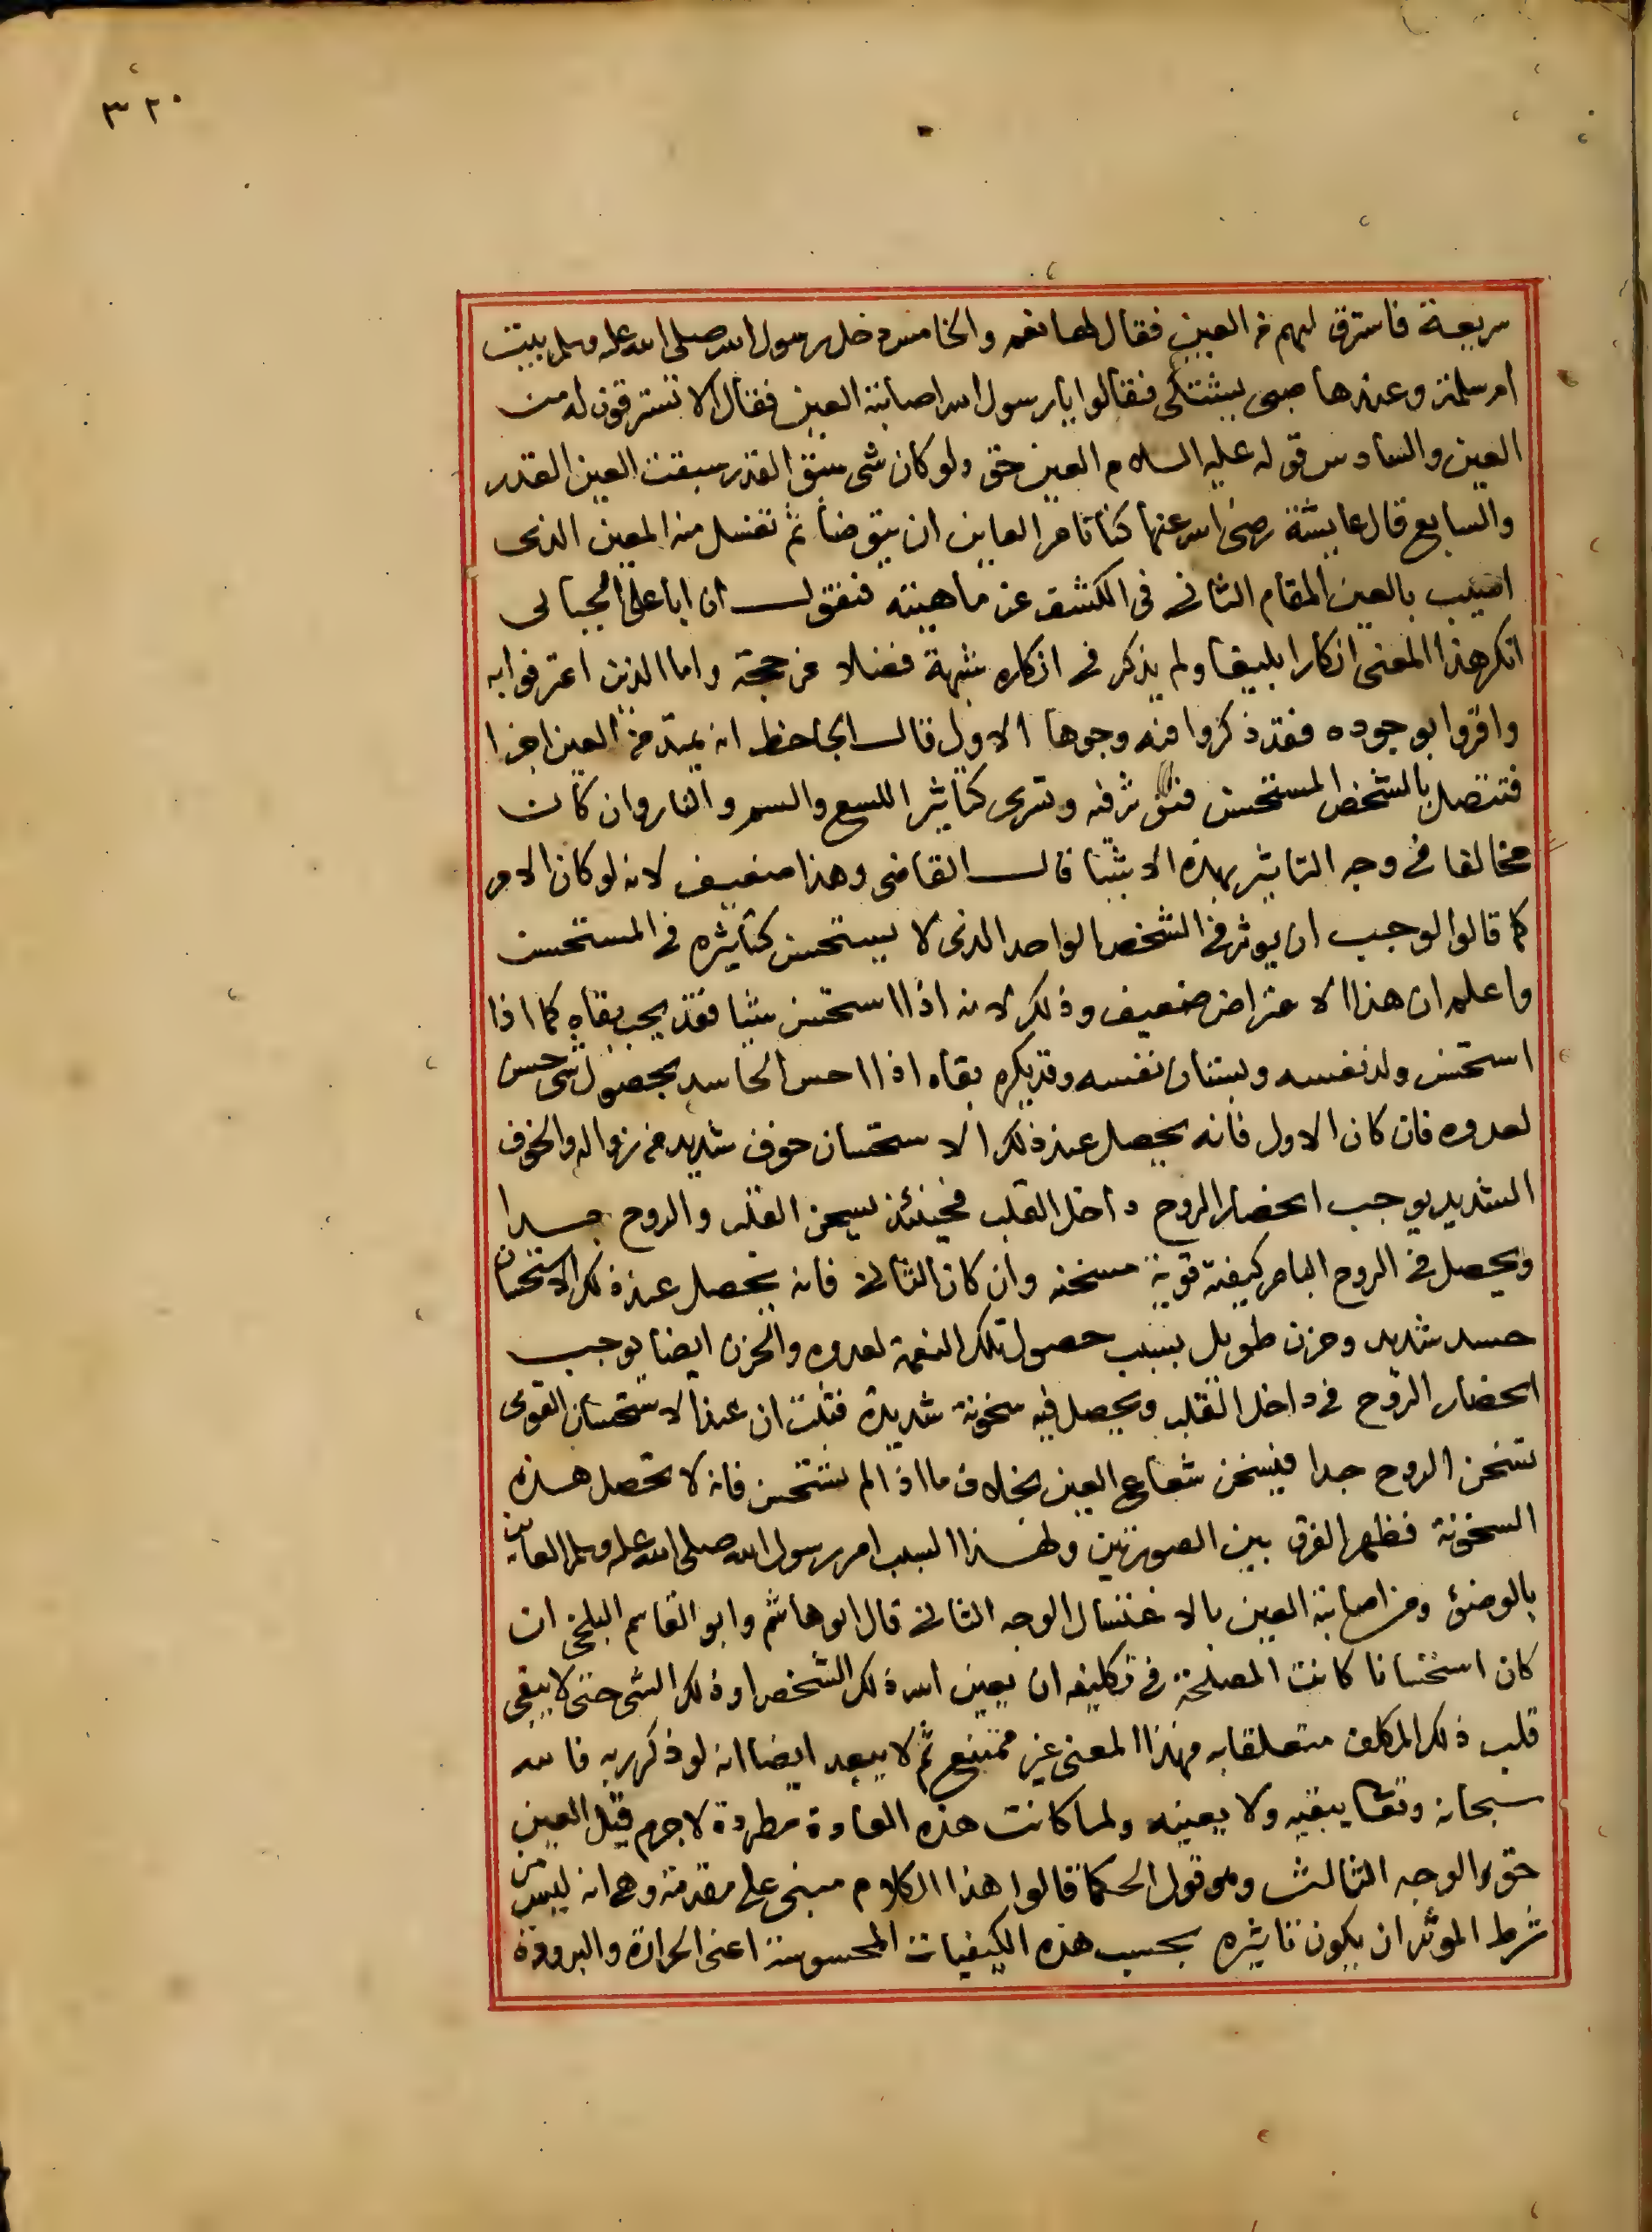 ٣٢٠
سريعة فاسترق لهم من العين فقال لها نعم والخامس دخل رسول الله صلى الله عليه وسلم بيت
ام سلمة وعندها صبى يشتكى فقالوا يا رسول الله اصابته العين فقال الا تسترقون له من
العين والسادس قوله عليه السلام العين حق ولو كان شى سبق القدر سبقت العين القدر
والسابع قال عايشة رضى الله عنها كنا نامر العاين ان يتوضأ ثم تغسل منه المعين الذى
اصيب بالعين المقام الثانى فى الكشف عن ماهيته فنقول ان ابا على الجباىى
انكر هذا المعنى انكارا بليغا ولم يذكر فى انكاره شبهة فضلا عن حجة واما الذين اعترفوا به
واقروا بوجوده فقد ذكروا فيه وجوها الاول قال الجاحظ انه يمتد من العين اجزا
فتتصل بالشخص المستحسن فتؤثر فيه وتسرى كتاثير اللسع والسم والنار وان كان
مخالفا فى وجه التاثير بهذه الاشيا قال القاضى وهذا ضعيف لانه لو كان الامر
كما قالوا لوجب ان يوثر فى الشخص الواحد الذى لا يستحسن كتاثيره فى المستحسن
واعلم ان هذا الاعتراض ضعيف وذلك لانه اذا استحسن شيا فقد يحب بقاه كما اذا
استحسن ولد نفسه وبستان نفسه وقد يكره بقاه اذا احس الحاسد بحصول شى حسن
لعدوه فان كان الاول فانه يحصل عند ذلك الاستحسان خوف شديد من زواله والخوف
الشديد يوجب انحصار الروح داخل القلب فحينئذ يسخن القلب والروح جدا
ويحصل فى الروح الباصر كيفية قوية مسخنه وان كان الثانى فانه يحصل عند ذلك الاستحسان
حسد شديد وحزن طويل بسبب حصول تلك النعمة لعدوه والحزن ايضا يوجب
انحصار الروح فى داخل القلب ويحصل فيه سخونة شديدة فثبت ان عند الاستحسان القوى
تسخن الروح جدا فيسخن شعاع العين بخلاف ما اذا لم يستحسن فانه لا تحصل هذه
السخونة فظهر الفرق بين الصورتين ولهذا السبب امر رسول الله صلى الله عليه وسلم العاين
بالوضؤ ومن اصابته العين بالاغتسال الوجه الثانى قال ابو هاشم وابو القاسم البلخى ان
كان استحسانا كانت المصلحة فى تكليفه ان يعين الله ذلك الشخص او ذلك الشى حتى لا يبقى
قلب ذلك المكلف متعلقا به فهذا المعنى غير ممتنع ثم لا يبعد ايضا انه لو ذكر ربه فالله
سبحانه وتعا يبقيه ولا يعينه ولما كانت هذه العادة مطردة لاجرم قيل العين
حق والوجه الثالث وهو قول الحكما قالوا هذا الكلام مبنى على مقدمة وهى انه ليس من
شرط الموثر ان يكون تاثيره بحسب هذه الكيفيات المحسوسة اعنى الحرارة والبرودة